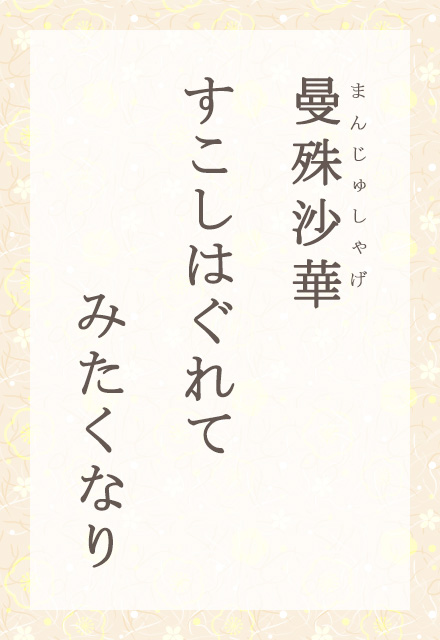 曼殊沙華
まんじゅしゃげ
すこしはぐれて
みたくなり